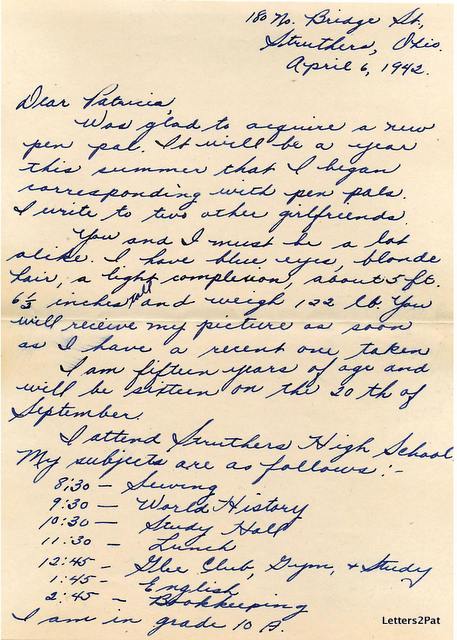 180 No. Bridge St.,
Struthers, Ohio.
April 6, 1942.
Dear Patricia,
Was glad to acquire a new
pen pal. It will be a year
this summer that I began
corresponding with pen pals.
I write to two other girlfriends.
You and I must be a lot
alike. I have blue eyes, blonde
hair, a light complexion, about 5 ft.
6½ inches tall and weigh 122 lb. You
will receive my picture as soon
as I have a recent one taken
I am fifteen years of age and
will be sixteen on the 20th of
September.
I attend Struthers High School.
My subjects are as follows:-
8:30 — Sewing
9:30 — World History
10:30 — Study Hall
11:30 — Lunch
12:45 — Glee Club, Gym, + Study
1:45 — English
2:45 — Bookkeeping
I am in grade 10 B.
Letters2Pat